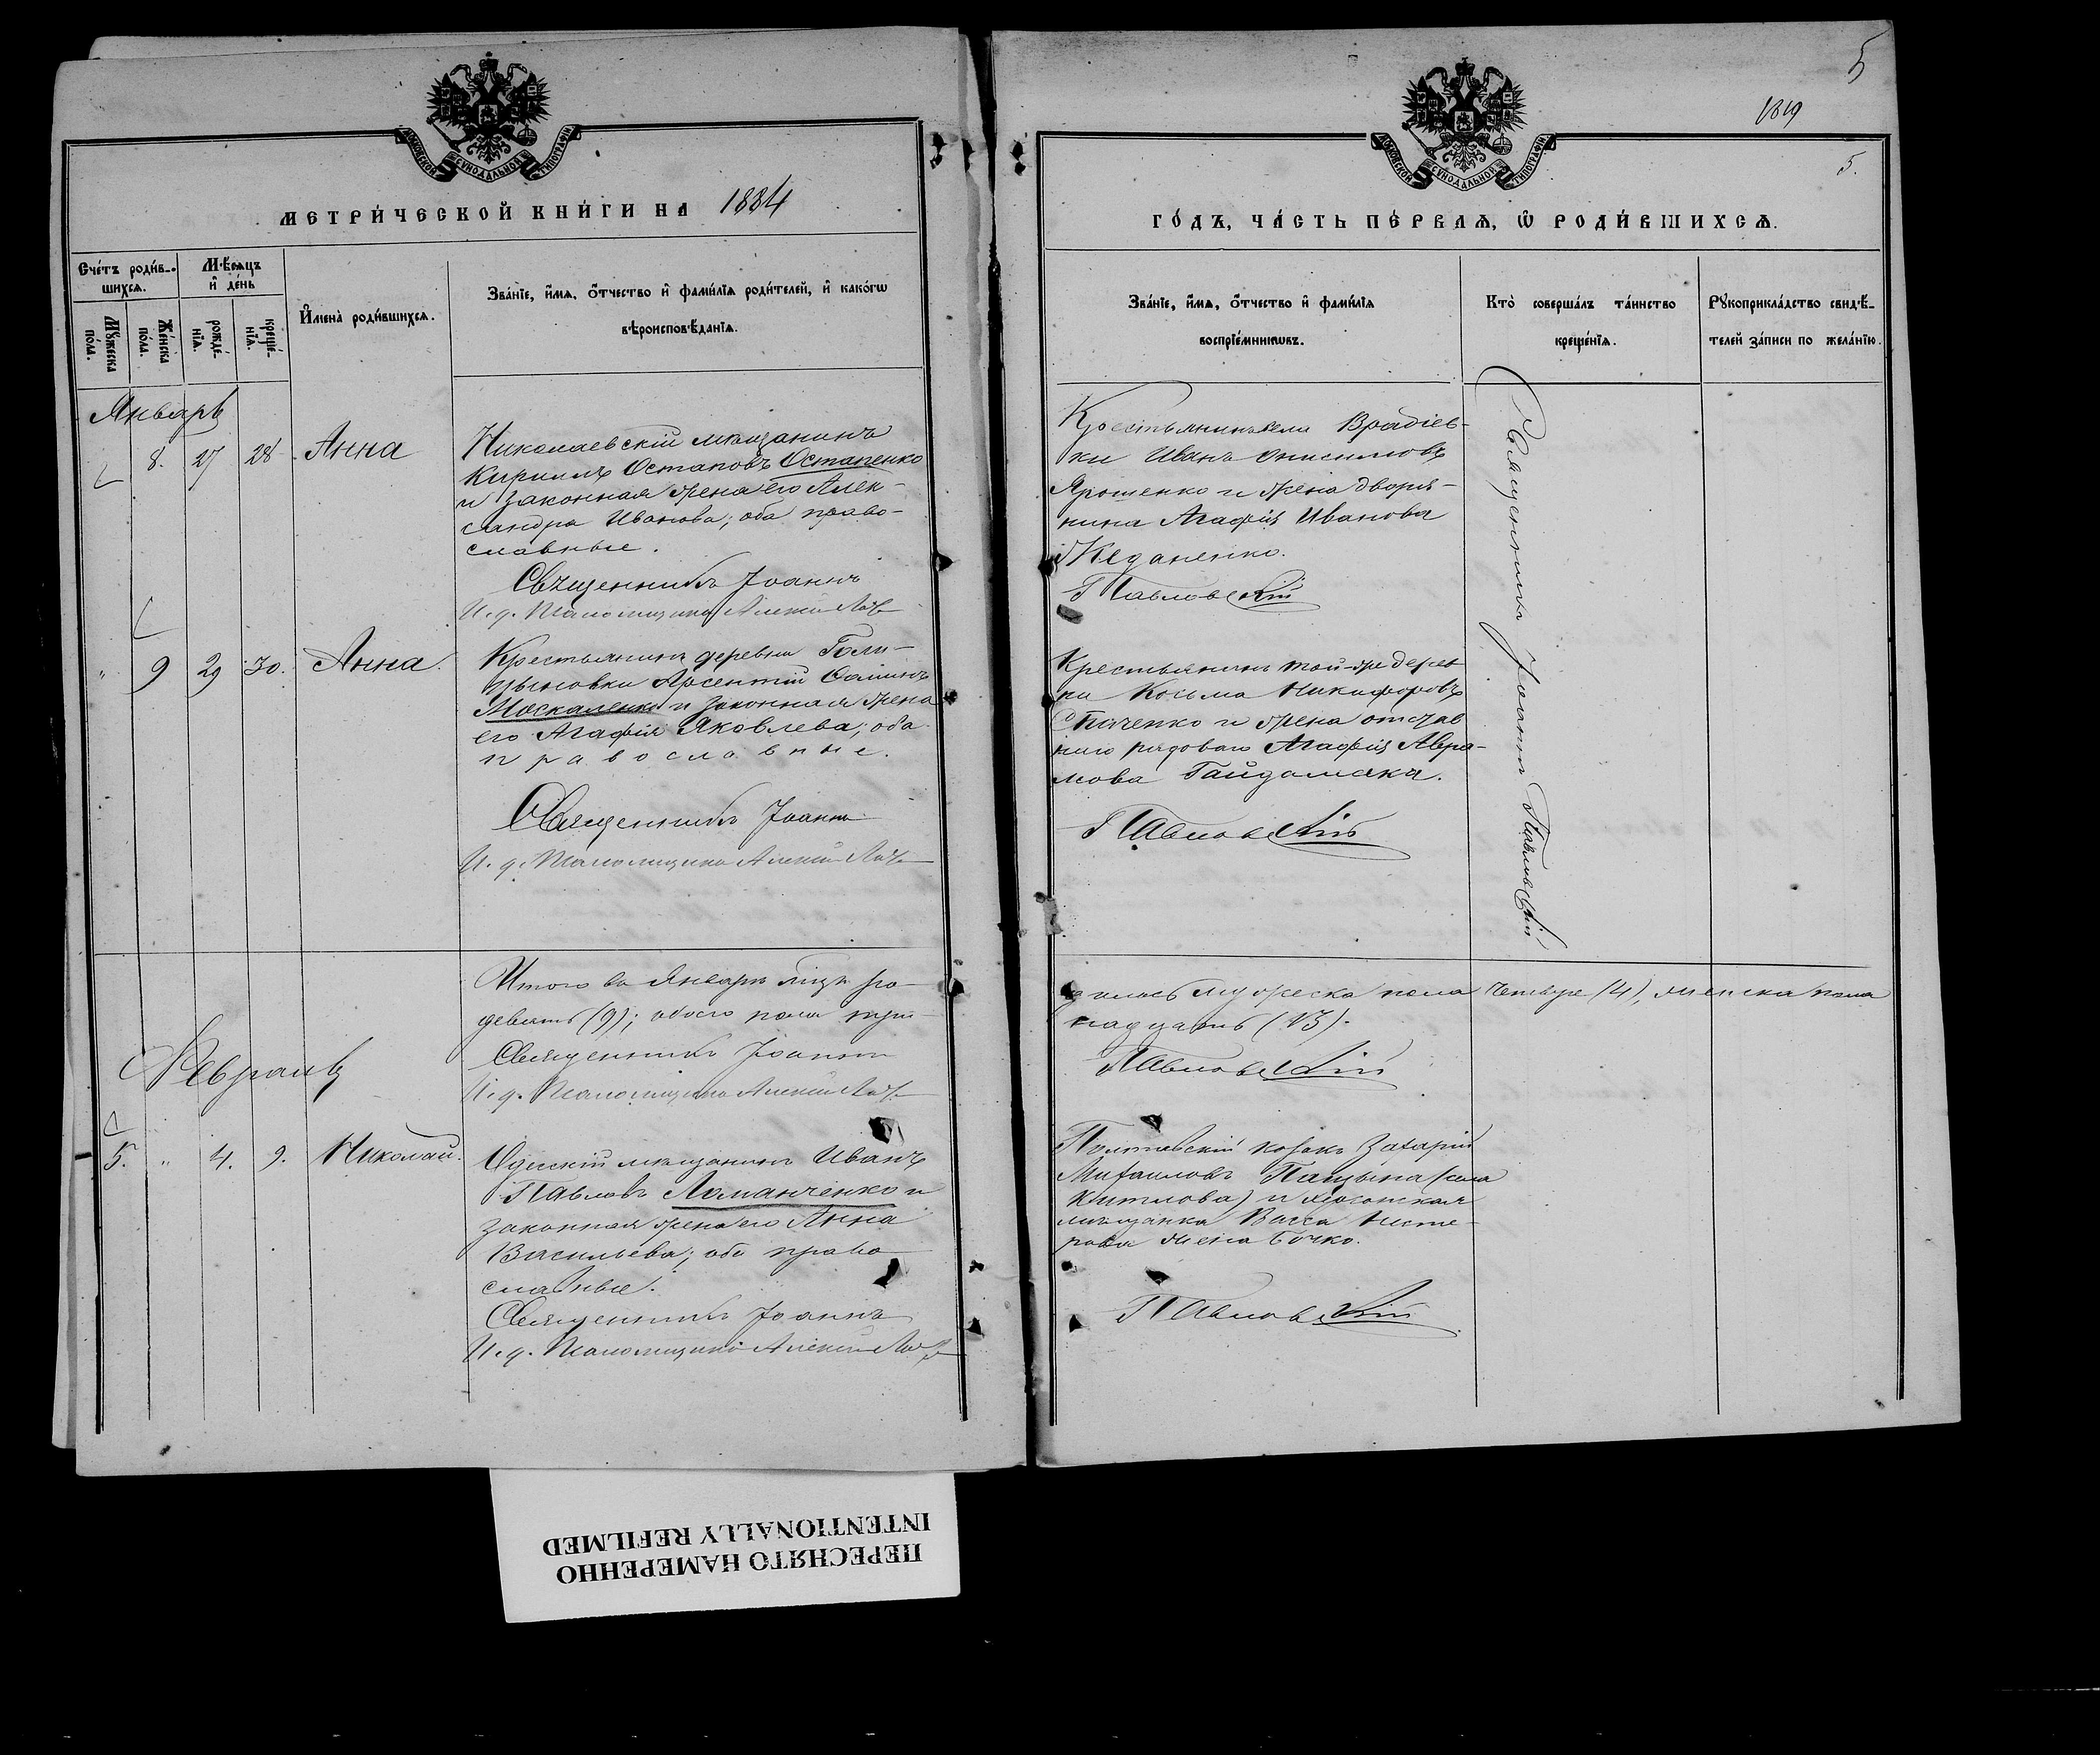 МОСКОВСКОЙ СУНОДАЛЬНОЙ ТИПОГРАФІИ
МЕТРИ́ЧЕСКОЙ КНИ́ГИ НА 1884
Счéтъ роди́в-
шихсѧ.
Мꙋ́жеска
по́ла.
Же́нска
по́ла.
Мѣ́сѧцъ
и҆ де́нь
рожде́-
нїѧ.
креще́-
нїѧ.
И҆мена̀ роди́вшихсѧ.
Зва́нїе, и҆́мѧ, ѻ҆́тчество и҆ фами́лїѧ роди́телей, и҆ како́гѡ
вѣроисповѣ́данїѧ.
Январь
8. 27 28 Анна
Николаевскій мѣщанинъ
Кириллъ Остаповъ Остапенко
и законная жена его Алек-
сандра Иванова; оба право-
славные.
Священникъ Іоаннъ
И. д. Псаломщика Алексій
" 9 29 30. Анна.
Крестьянинъ деревни Голи-
цыновки Арсентій
Москаленко и законная жена
его Агафія Яковлева; оба
православные.
Священникъ Іоаннъ
И. д. Псаломщика Алексій
Итого въ Январѣ мцѣ ро-
девять (9); обоего пола три-
Священникъ Іоаннъ
И. д. Псаломщика Алексій
Февраль
5. " 4. 9. Николай.
Одесскій мѣщанинъ Иванъ
Павловъ Ломанченко и
законная жена его Анна
Васильева; оба право
славные.
Священникъ Іоаннъ
И. д. Псаломщика Алексій
5
1819
5.
МОСКОВСКОЙ СУНОДАЛЬНОЙ ТИПОГРАФІИ
ГО́ДЪ, ЧА́СТЬ ПЕ́РВАѦ, Ѡ҆ РОДИ́ВШИХСѦ.
Зва́нїе, и҆́мѧ, ѻ҆́тчество и҆ фами́лїѧ
воспрїе́мникѡвъ.
Кто̀ соверша́лъ та́инство
креще́нїѧ.
Рꙋкоприкла́дство свидѣ́-
телей за́писи по жела́нїю.
Крестьянинъ села Врадіев-
ки Иванъ Онисимовъ
Ярошенко и жена дворя-
нина Агафія Иванова
Павловскій
Крестьянинъ той-же дерев
ни Косьма Никифоровъ
и жена отстав
наго рядоваго Агафія Авра-
мова Гайдамака.
Павловскій
Священникъ Іоаннъ Павловскій
дилось мужеска пола четыре (4), женска пола
надцать (13).
Павловскій
Полтавскій козакъ Захарій
Михаиловъ (села
и херсонская
мѣщанка Васса Несте-
рова жена Бочко.
Павловскій
ПЕРЕСНЯТО НАМЕРЕННО
INTENTIONALLY REFILMED